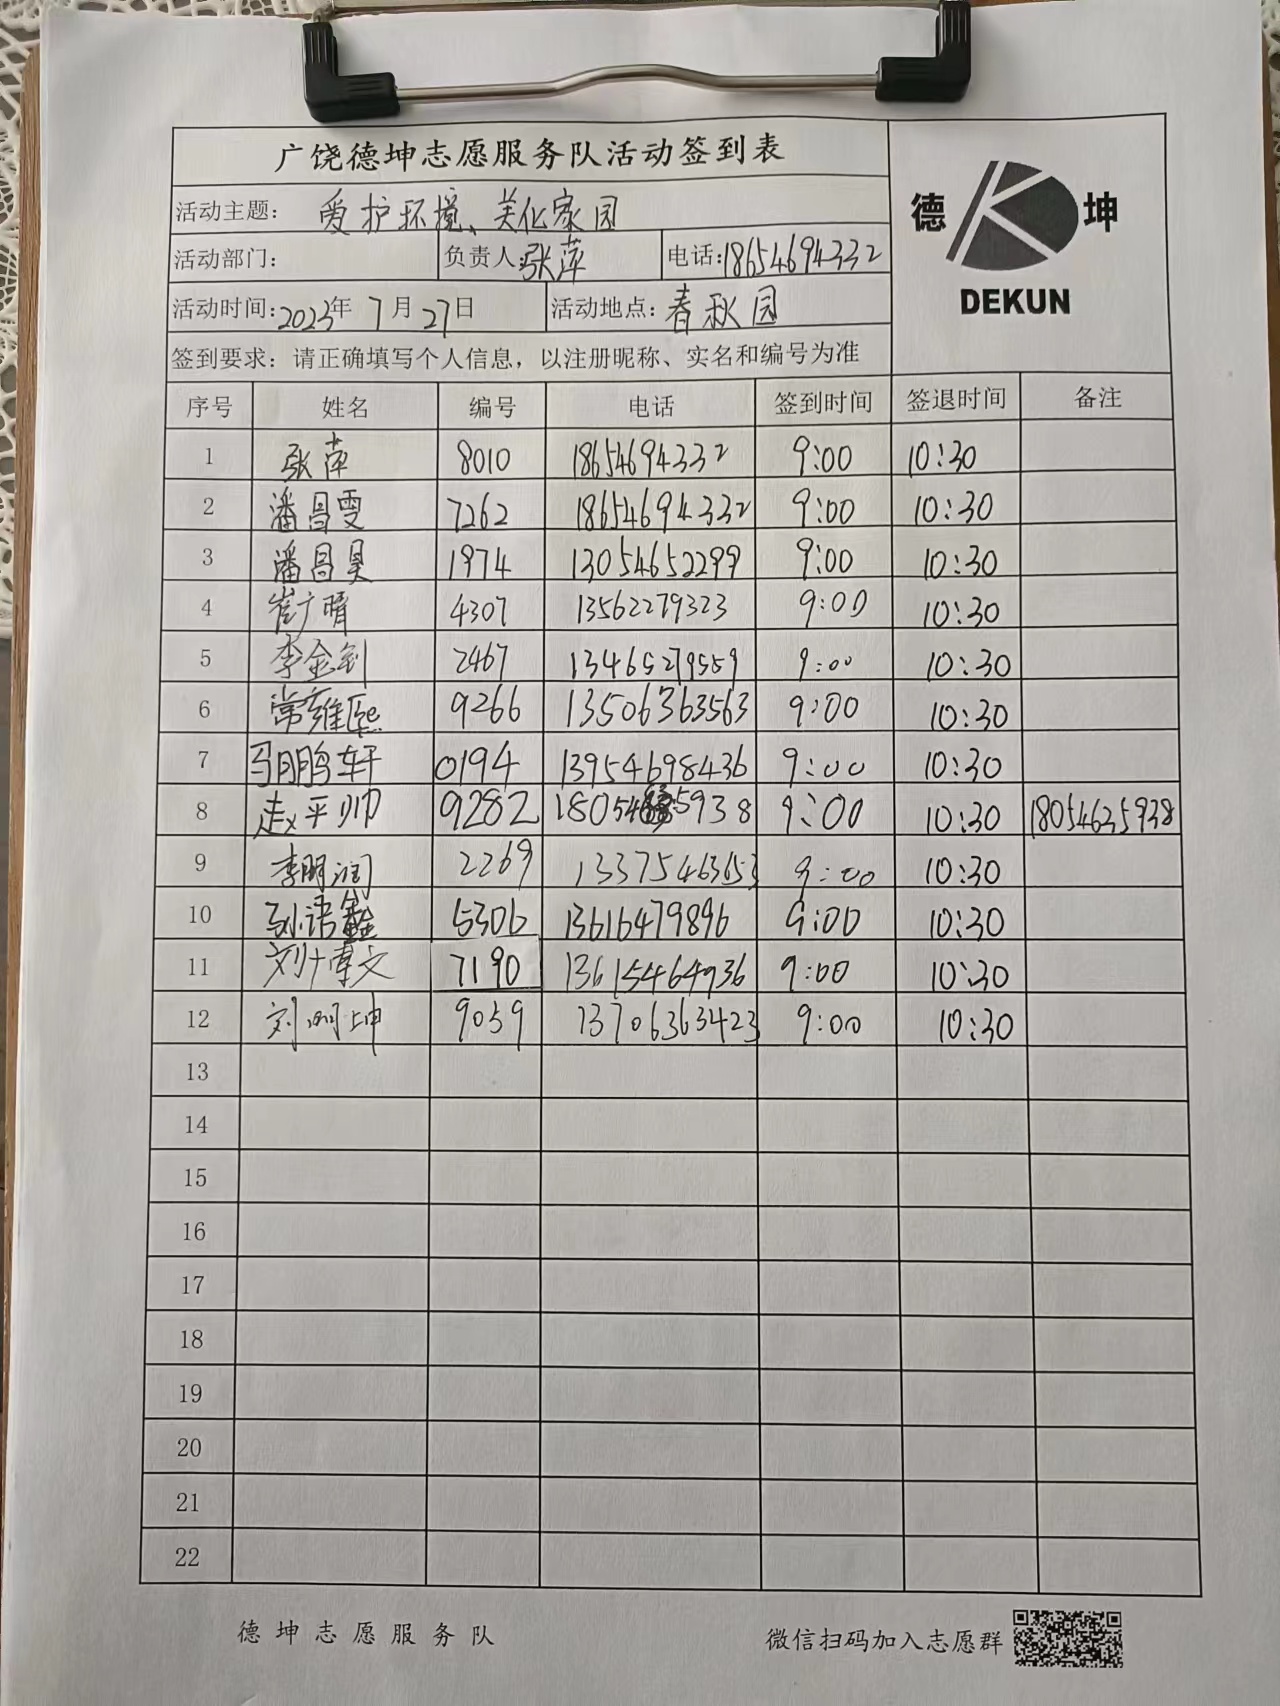 广饶德坤志愿服务队活动签到表
德 坤
DEKUN
活动主题： 爱护环境、美化家园
活动部门： 负责人:张萍 电话:18654694332
活动时间:2023年 7月27日 活动地点: 春秋园
签到要求：请正确填写个人信息，以注册昵称、实名和编号为准
序号 姓名 编号 电话 签到时间 签退时间 备注
1 张萍 8010 18654694332 9:00 10:30
2 潘昌雯 7262 18654694332 9:00 10:30
3 潘昌昊 1974 13054652299 9:00 10:30
4 崔广晴 4307 13562279323 9:00 10:30
5 李金钊 2467 13465279559 9:00 10:30
6 常雍熙 9266 13506363563 9:00 10:30
7 马鹏轩 0194 13954698436 9:00 10:30
8 赵平帅 9282 9:00 10:30 18054635938
9 李明润 2269 13375463653 9:00 10:30
10 孙语鑫 5306 13616479896 9:00 10:30
11 刘博文 7190 13615464936 9:00 10:30
12 刘明坤 9059 13706363423 9:00 10:30
13
14
15
16
17
18
19
20
21
22
德坤志愿服务队 微信扫码加入志愿群